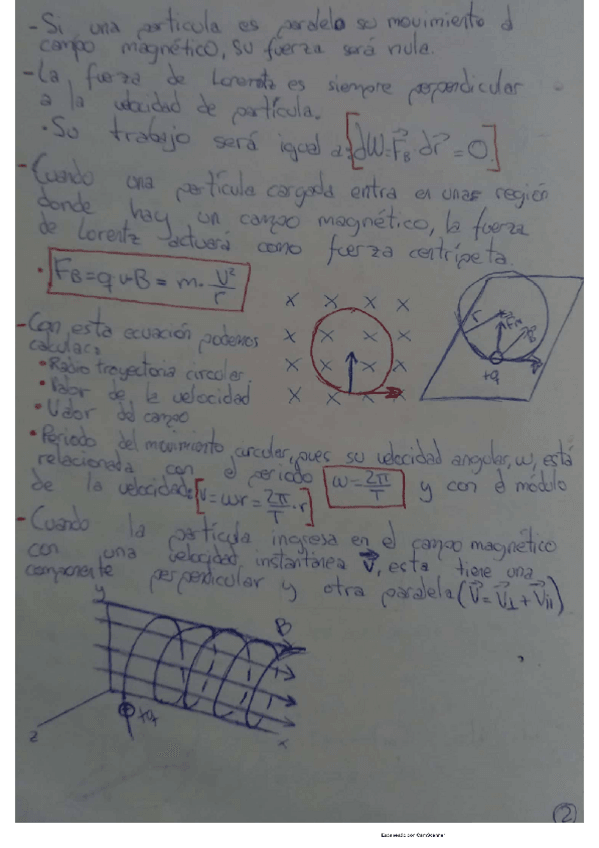 - Si una partícula es paralelo su movimiento al
campo magnético, su fuerza será nula.
- La fuerza de Lorentz es siempre perpendicular
a la velocidad de partícula.
• Su trabajo será igual a: [dW = F⃗_B · dr⃗ = 0.]
- Cuando una partícula cargada entra en unas región
donde hay un campo magnético, la fuerza
de Lorentz actuará como fuerza centrípeta.
• F_B = q v B = m · v²/r
- Con esta ecuación podemos
calcular:
• Radio trayectoria circular
• Valor de la velocidad
• Valor del campo
• Periodo del movimiento circular, pues su velocidad angular, ω, está
relacionada con el periodo ω = 2π/T y con el módulo
de la velocidad: [v = ωr = 2π/T · r]
- Cuando la partícula ingresa en el campo magnético
con una velocidad instantánea v⃗, esta tiene una
componente perpendicular y otra paralela (v⃗ = v⃗⊥ + v⃗ıı)
x x x x
x x x x
x x x x
x x x x
r
+q
y
B
z
x
2
Escaneado con CamScanner